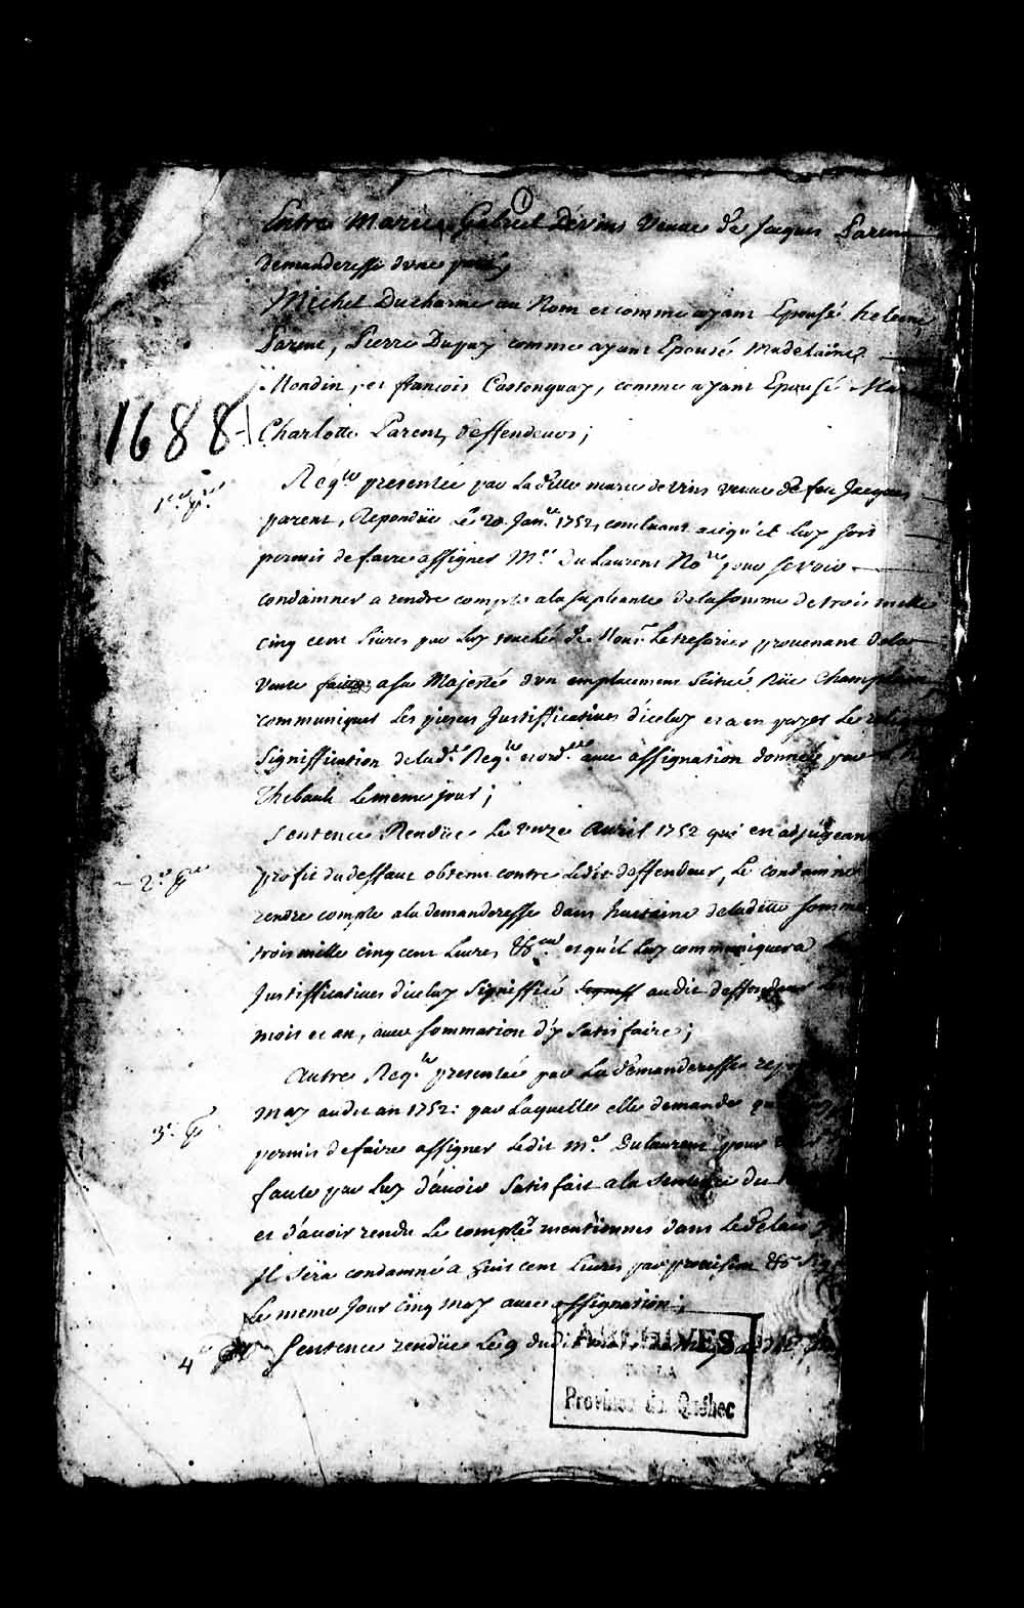 1
Entre Marie Gabriel Dévins Veuve de Jacques Parent
Demanderesse d'une part,
Michel Ducharme au Nom et comme ayant Epousé helene
Parent, Pierre Dupuy comme ayant Epousé Madelaine
Mondin, et francois Castonguay, comme ayant Epousé
1688
Charlotte Parent, deffendeurs;
Reqte presentée par Ladte marie devins veuve de feu Jacques
1ere pce
parent, Repondüe Le 20 Janer 1752, concluant acequ'il Luy soit
permis defaire assigner Me DuLaurent Nore pour se voir
condamner a rendre compte ala supleante delasomme de trois mille
cinq cent Livres par Luy touchée de Monsr. Le tresorier provenant dela
Vente faitte asa Majesté d'un emplacement Scitué Rüe Champlain
communiquer Les pieces Justifficatives d'iceluy et a en payer Le
Signiffication deladte Reqte et ordce avec assignation donnée par
Thibault Le meme jour;
Sentence Rendüe Le onze Avril 1752 qui en adjugeant
2e pce
profit du deffaut obtenu contre Ledit deffendeur, Le condamne
rendre compte ala demanderesse dans huitaine deladitte somme
trois mille cinq cent Livres &ca et qu'il Luy communiquera
Justifficatives d'iceluy Signiffié audit deffendeur
mois et an, avec sommation d'y satisfaire;
Autre Reqte presentée par La demanderesse
May audit an 1752: par Laquelle elle demande
3e pce
permis defaire assigner Ledit Me DuLaurent pour
faute par Luy d'avoir satisfait a la sentence du
et d'avoir rendu Le compte mentionnés dans Le delais
Il Sera condamné a huit cent Livres par provision &c
Le meme Jour cinq may avec assignation;
4e
Sentence rendüe Le 9 dudit
ARCHIVES
DE LA
Province de Québec